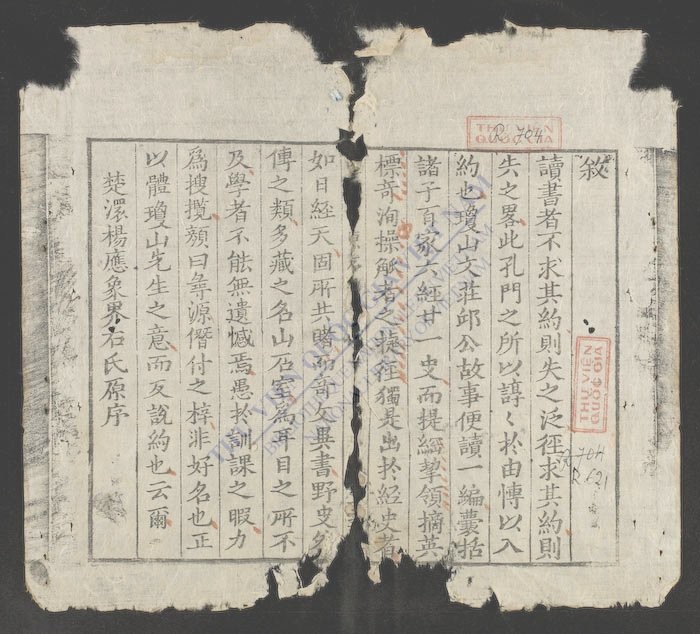 敘
讀書者不求其約則失之泛徑求其約則
失之畧此孔門之所以諄〻於由博以入
約也瓊山文莊邱公故事便讀一編囊括
諸子百家六經廿一史而提綱挈領摘英
標奇洵操觚者之捷徑獨是出於經史者
如日経天固所共睹而奇文異書野史
傳之類多藏之名山石室為耳目之所不
及學者不能無遺憾焉愚於訓課之暇力
為搜攬顔曰尋源僭付之梓非好名也正
以體瓊山先生之意而反說約也云爾
楚澴楊應象界右氏原序
THƯ VIỆN
QUỐC GIA
R. 704
THƯ VIỆN
QUỐC GIA
R. 621